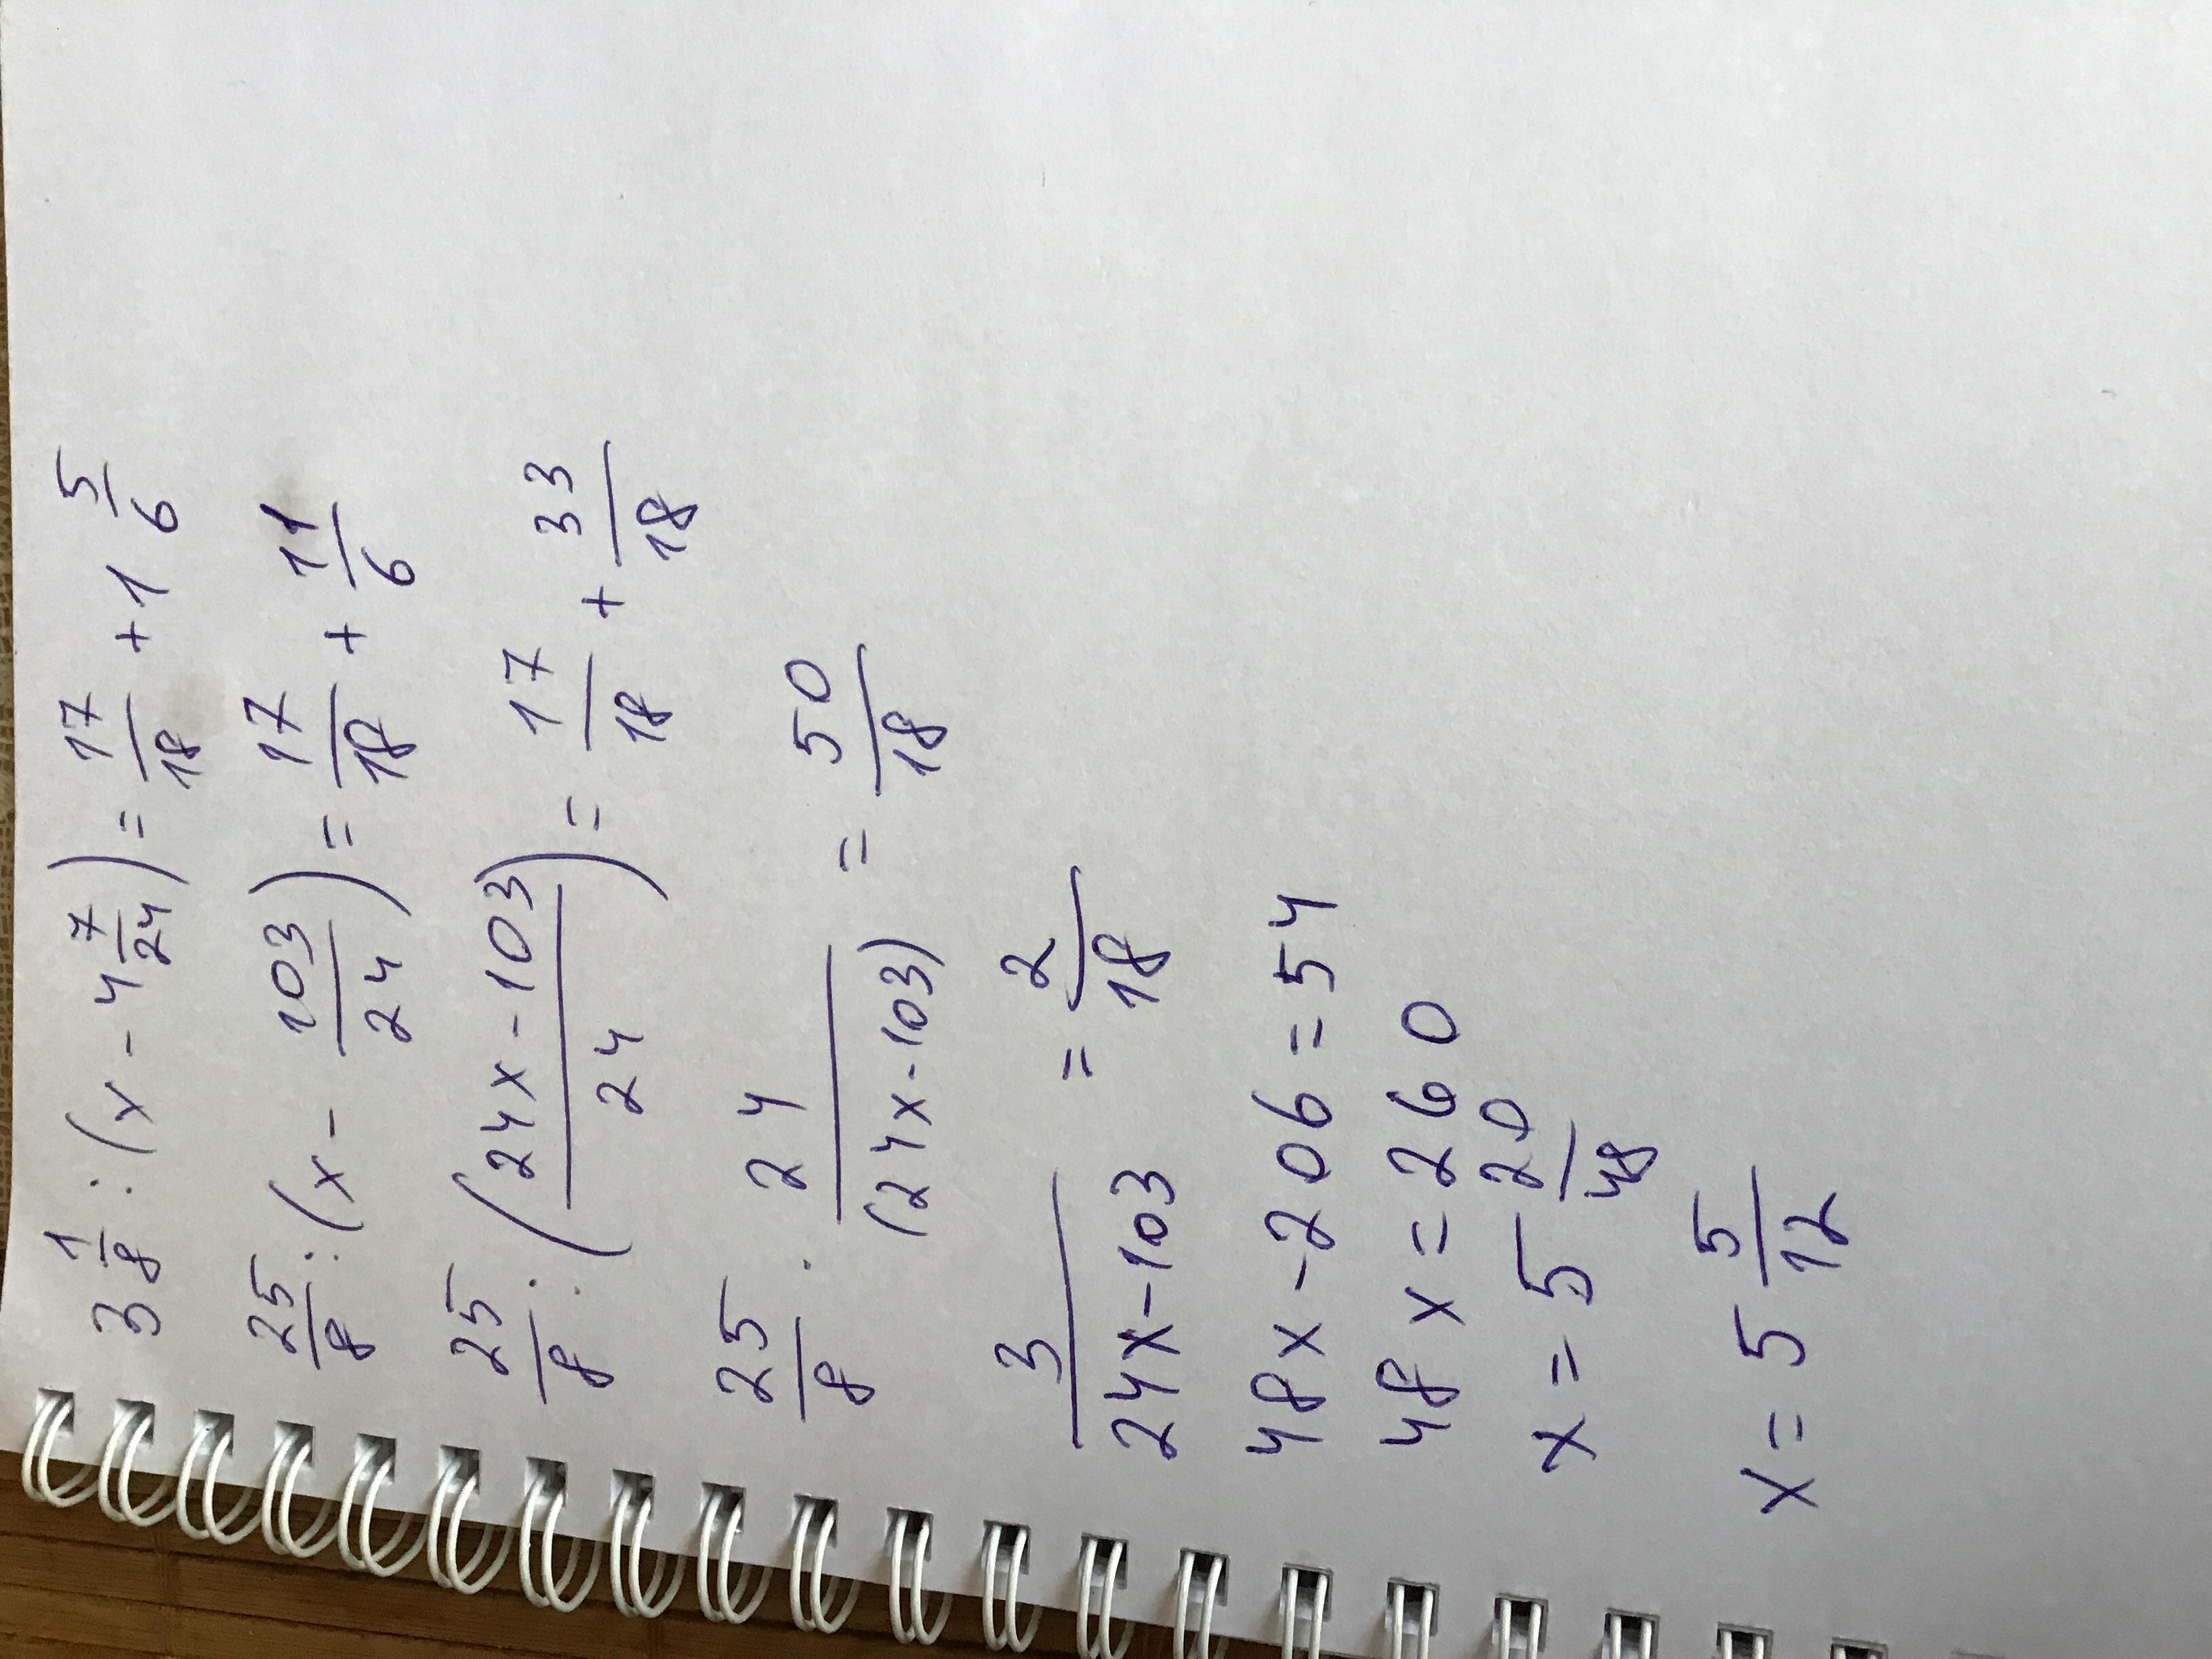 3 1/8 : (x - 4 7/24) = 17/18 + 1 5/6
25/8 : (x - 103/24) = 17/18 + 11/6
25/8 : (24x - 103/24) = 17/18 + 33/18
25/8 · 24/(24x - 103) = 50/18
3/24x - 103 = 2/18
48x - 206 = 54
48x = 260
x = 5 20/48
x = 5 5/12